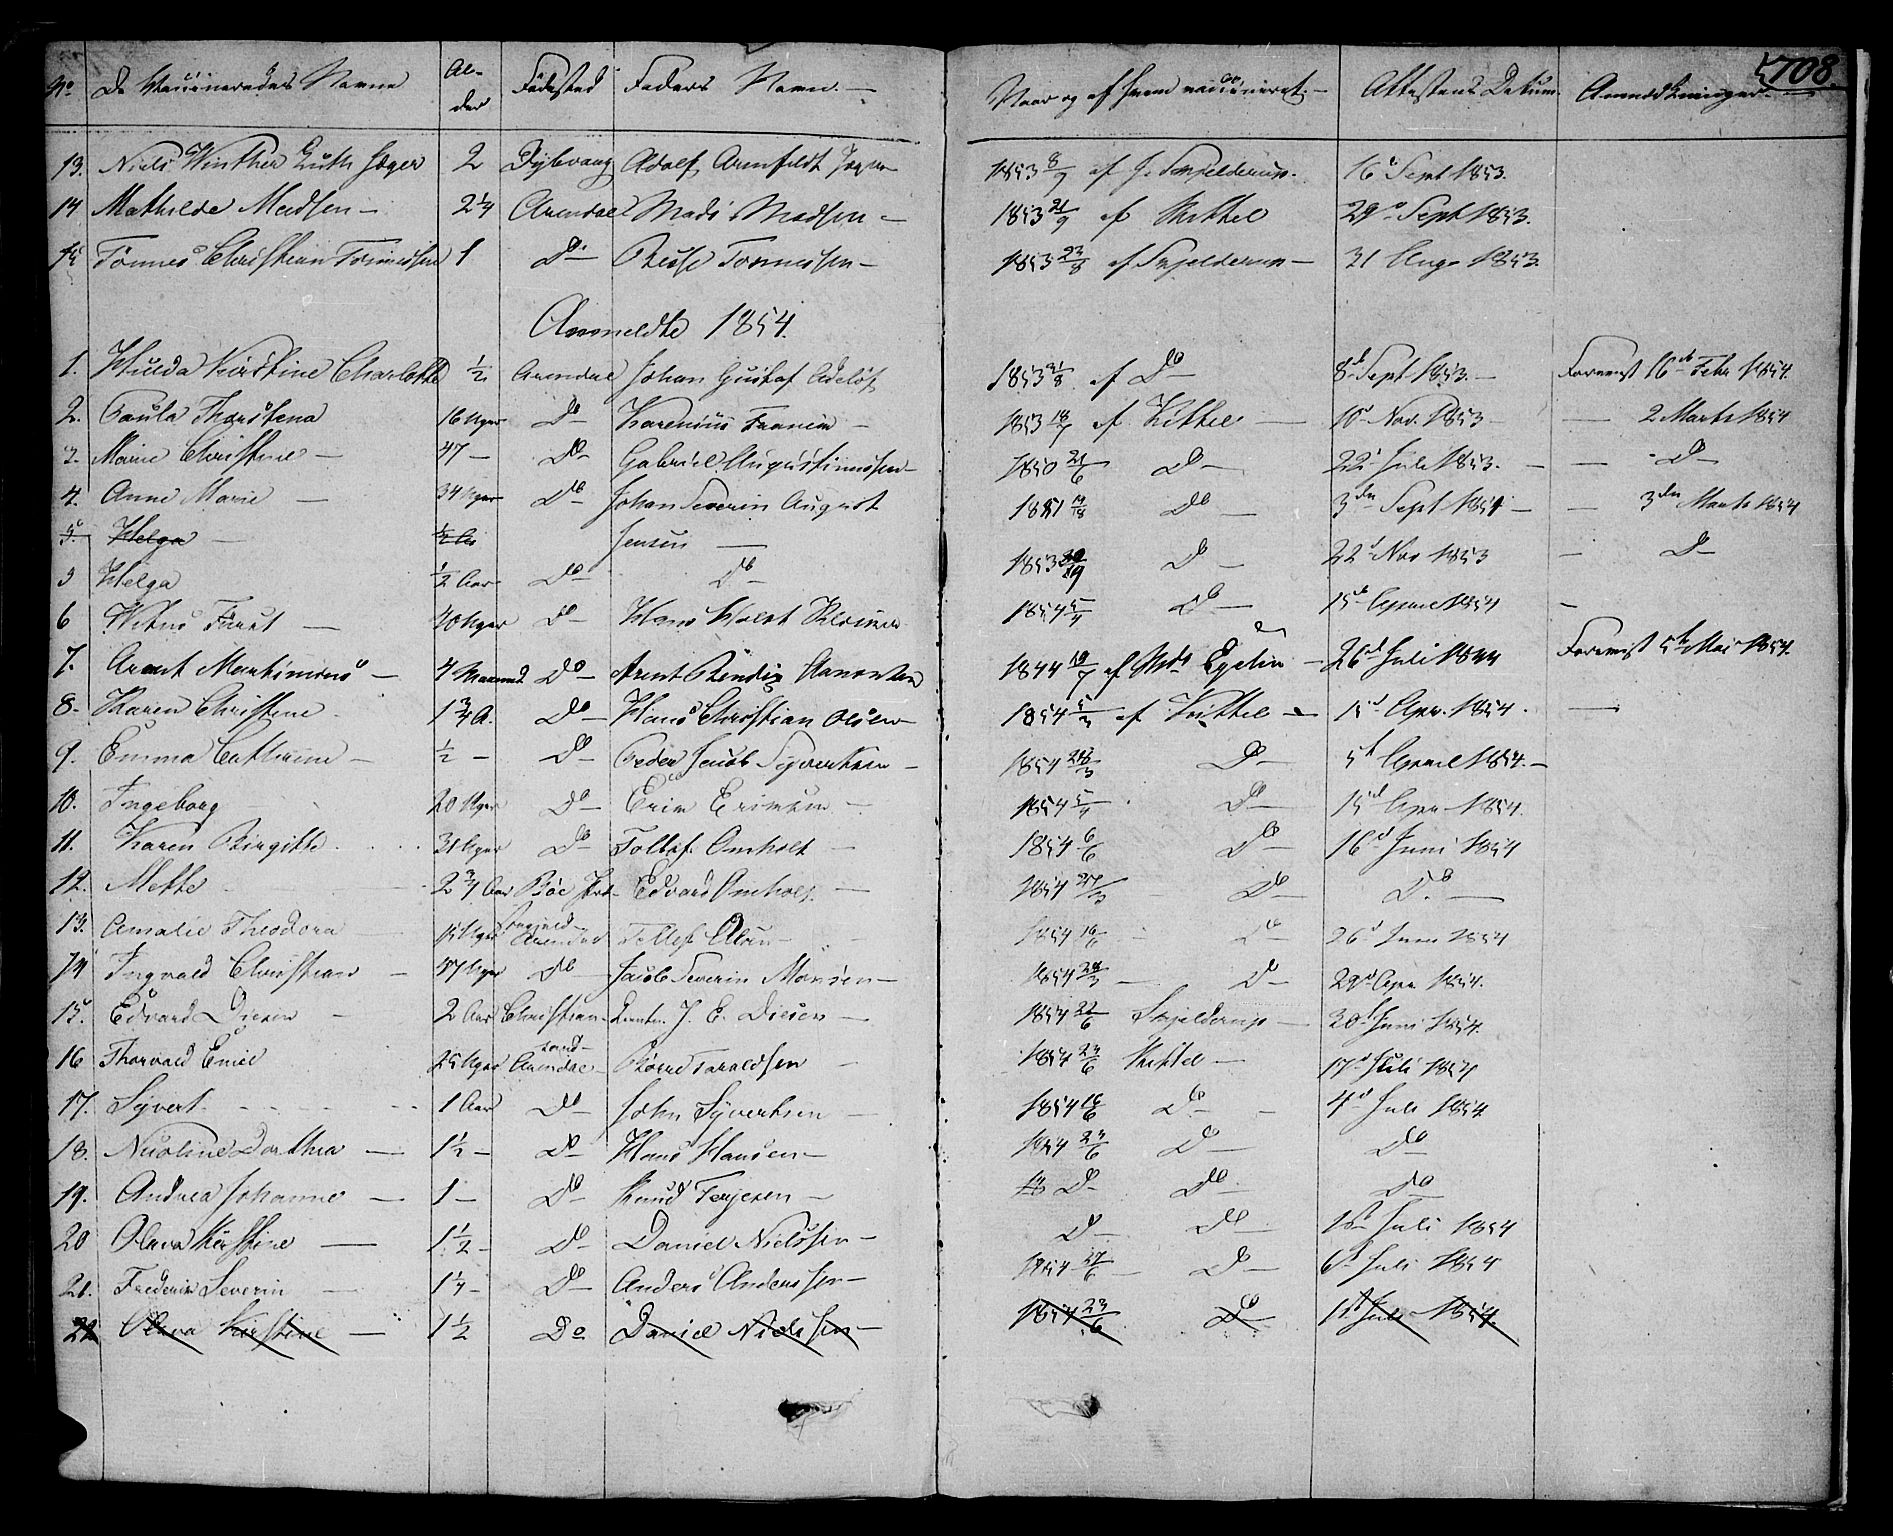 708.
No De Vaccineredes Navne | Alder | Fødested | Faders Navn | Naar og af hvem vaccineret. | Attestens Datum. | Anmærkninger
13. Niels Winther Juth Jæger 2 Dybvaag Adolf Arenfeldt Jæger 1853 8/9 af J. Skjelderup. 16 Sept 1853.
14 Mathilde Madsen 2 1/4 Arendal Mads Madsen 1853 21/9 af Kittel 29 Sept 1853.
15 Tønnes Christian Tønnessen 1 Do Tønnessen 1853 23/8 af Skjelderup 31 Aug 1853.
Anmeldte 1854.
1. Hulda Kirstine Charlotte 1/2 Arendal Johan Gustaf Adeløf 1853 31/8 af Do 8 Sept 1853. Foreviist 16de Febr 1854.
2. Paula Thorstena 16 Uger Do 1853 18/7 af Kittel 10 Nov. 1853 2 Marts 1854
3. Marie Christine 47 Do Gabriel Augustinussen 1850 21/6 Do 22 Juli 1853. Do
4. Anne Marie 34 Uger Do Johan Severin August 18 Do 3den Sept 3den Marts 1854
5. Helga 1/2 Jensen 1853 Do 22 Nov 1853 Do
5 Helga 1/2 Aar Do Do 1854 5/4 Do 15de April 1854
6 Furst 40 Uger Do Hans
7. Arent Martinius 4 Maaned Do Arent Bendix Aanonsen 1844 19/7 af Mds Egelin 26d Juli 1844 Foreviist 5te Mai 1854.
8. Karen Christine 1 3/4 A. Do Hans Christian Olsen 1854 5/3 af Kittel 15d Apr. 1854.
9. Emma Cathrine 1/2 Do Peder Jacob Syvertsen 1854 28/3 Do 5t April 1854.
10. Ingeborg 20 Uger Do Erik Eriksen 1854 5/4 Do 15d Apr 1854.
11. Karen Birgitte 31 Uger Do Tollef Omholt 1854 6/6 Do 16d Juni 1854
12. Mette 2 3/4 Aar Edvard Omholt 1854 Do Do
13. Amalie Theodora 15 Uger Arendal Tellef Olsen 1854 16/6 Do 26d Juni 1854
14 Ingvald Christian 47 Uger Do Jacob Severin Monsen 1854 28/3 Do 29d Apr 1854.
15. Edvard Diesen 2 Aar Christian- J. E. Diesen 1854 22/6 Skjelderup 30t Juni 1854.
sand-
16 Thorvald Emil 25 Uger Arendal Børre Taraldsen 1854 23/6 Kittel 17d Juli 1854
17. Syvert 1 Aar Do John Syvertsen 1854 16/6 Do 4d Juli 1854
18. Nicoline Dorthea 1 1/2 Do Hans Hansen 1854 23/6 Do Do
19. Andrea Johanne 1 Do Knud Terjesen Do Do Do
20 Olava Kirstine 1 1/2 Do Daniel Nielssen Do Do 1st Juli 1854
21. Frederik Severin 1 1/4 Do Anders Anderssen 1854 27/6 Do 6t Juli 1854
22 Olava Kirstine 1 1/2 Do Daniel Nielssen 1854 23/6 Do 1st Juli 1854.